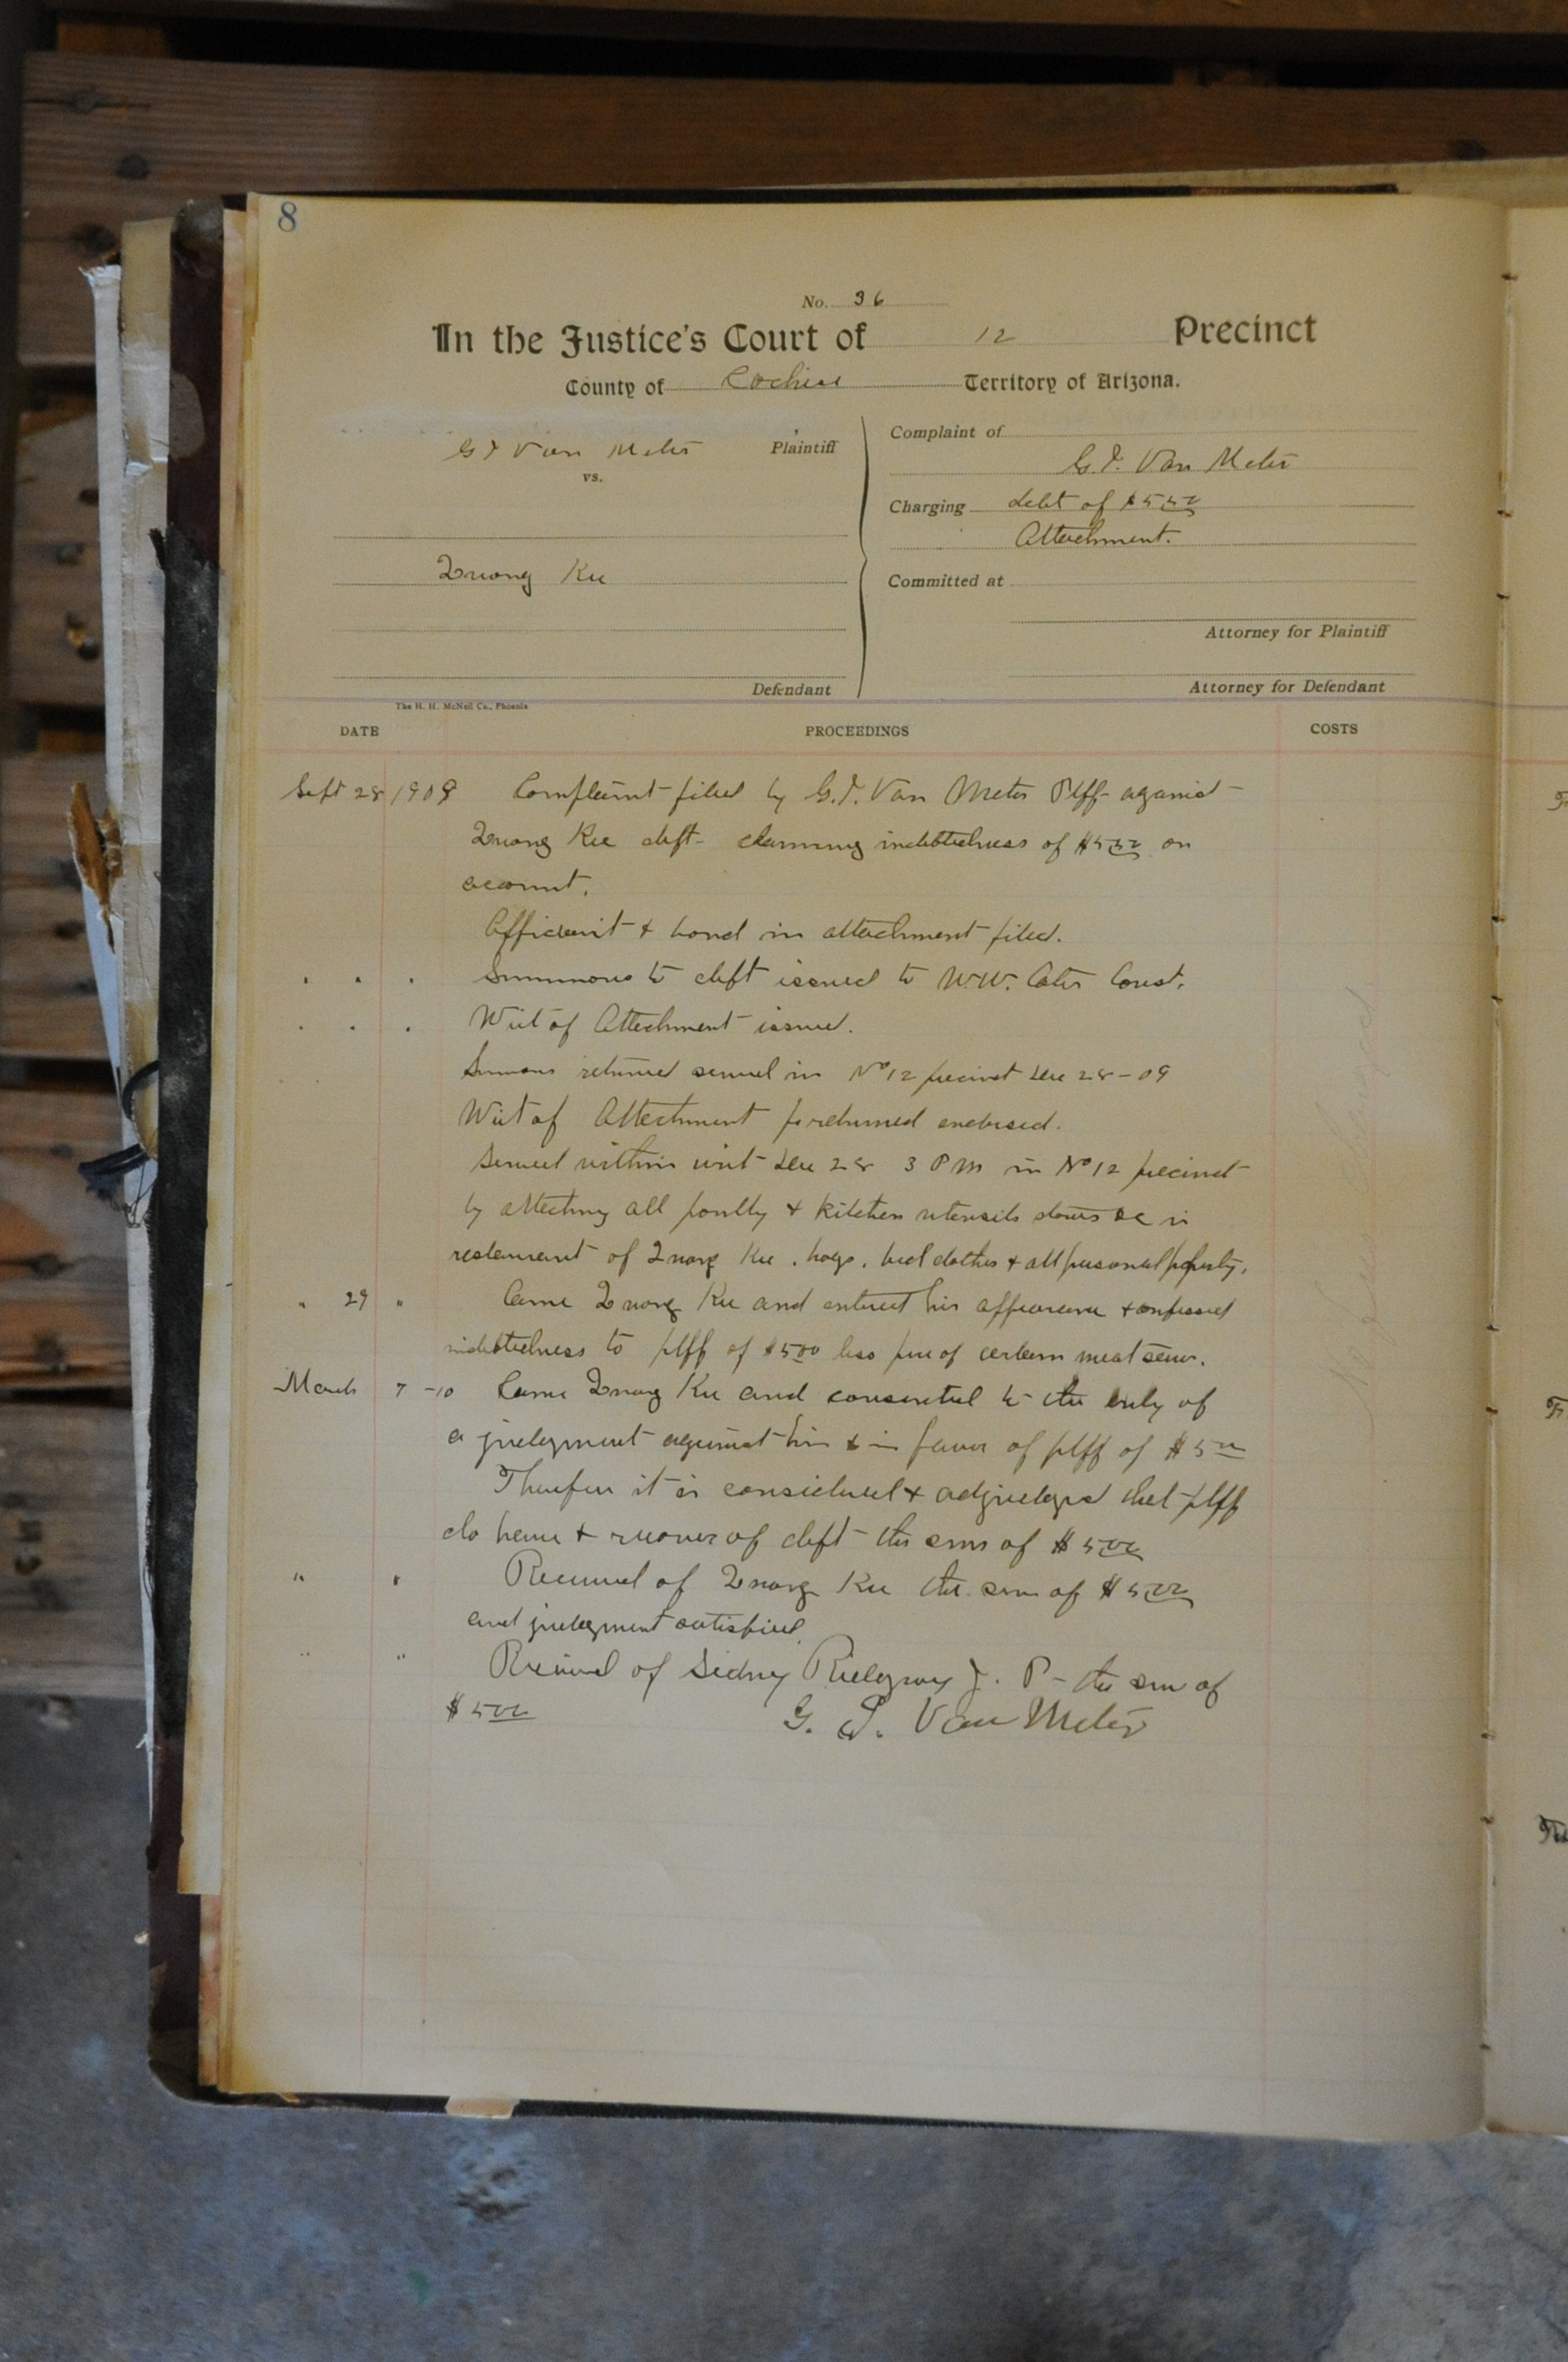 8
No. 36
In the Justice's Court of 12 Precinct
County of Cochise Territory of Arizona.
G Van Meter Plaintiff
vs.
Quong Kee
Defendant
Complaint of
G. Van Meter
Charging debt of
Attachment.
Committed at
Attorney for Plaintiff
Attorney for Defendant
The H. H. McNeil Co., Phoenix
DATE PROCEEDINGS COSTS
28 1909 Complaint filed by G. Van Meter Plff against
Quong Kee deft claiming indebtedness of on
account.
Affidavit & bond in attachment filed.
Summons to deft issued to W.W. Const.
Writ of Attachment issued.
Summons returned served in No 12 precinct Dec 28-09
Writ of Attachment returned endorsed.
Served within writ Dec 28 3 PM in No 12 precinct
by attaching all poultry & kitchen utensils in
restaurant of Quong Kee, hogs, bed clothes & all personal property.
" 29 " Came Quong Kee and entered his appearance & confessed
indebtedness to plff of $5 00 less of certain meat
March 7 -10 Came Quong Kee and consented to the entry of
a judgment against him & in favor of plff of $5 00
Therefore it is considered & adjudged that plff
do have & recover of deft the sum of $5 00
" " Received of Quong Kee the sum of $5 00
and judgment satisfied.
" " Received of Sidney Ridgway J. P- the sum of
$5 00 G. Van Meter